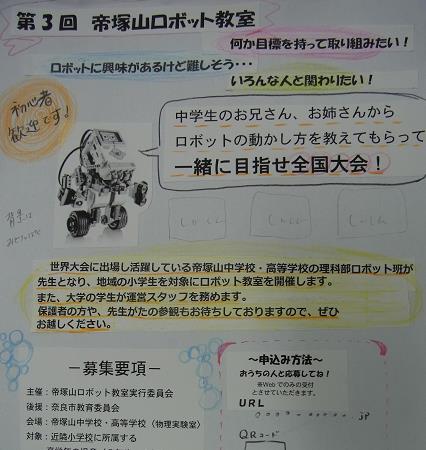 第3回 帝塚山ロボット教室
何か目標を持って取り組みたい！
ロボットに興味があるけど難しそう・・・
いろんな人と関わりたい！
初心者
歓迎です！
中学生のお兄さん、お姉さんから
ロボットの動かし方を教えてもらって
一緒に目指せ全国大会！
背景は
世界大会に出場し活躍している帝塚山中学校・高等学校の理科部ロボット班が
先生となり、地域の小学生を対象にロボット教室を開催します。
また、大学の学生が運営スタッフを務めます。
保護者の方や、先生がたの参観もお待ちしておりますので、ぜひ
お越しください。
－募集要項－
主催：帝塚山ロボット教室実行委員会
後援：奈良市教育委員会
会場：帝塚山中学校・高等学校（物理実験室）
対象：近隣小学校に所属する
～申込み方法～
おうちの人と応募してね！
※Webでのみの受付
とさせていただきます。
URL
QRコード